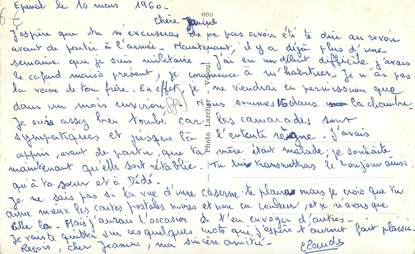 Epinal le 10 mars 1960.
Chère Janine
J'espère que tu m'excuseras de ne pas avoir été te dire au revoir
avant de partir à l'armée. Maintenant, il y a déjà plus d'une
semaine que je suis militaire. J'ai eu un début difficile, j'avais
le cafard mais à présent, je commence à m'habituer. Je n'ai pas
la veine de ton frère. En effet, je ne viendrai en permission que
dans un mois environ. Nous sommes 16 dans la chambre.
Je suis assez bien tombé car les camarades sont
sympathiques et jusque là l'entente règne. J'avais
appris, avant de partir, que ta mère était malade; je souhaite
maintenant qu'elle soit rétablie. Tu lui transmettras le bonjour ainsi
qu'à ta sœur et à Dédé.
Je ne sais pas si la vue d'une caserne te plaira mais je crois que tu
aime mieux les cartes postales noires et non en couleur, et je n'avais que
celle là. Mais j'aurai l'occasion de t'en envoyer d'autres.
Je vais te quitter sur ces quelques mots qui j'espère t'auront fait plaisir.
Reçois, cher Jeannine, ma sincère amitié.
Claude
Photo Larcher - Vesoul